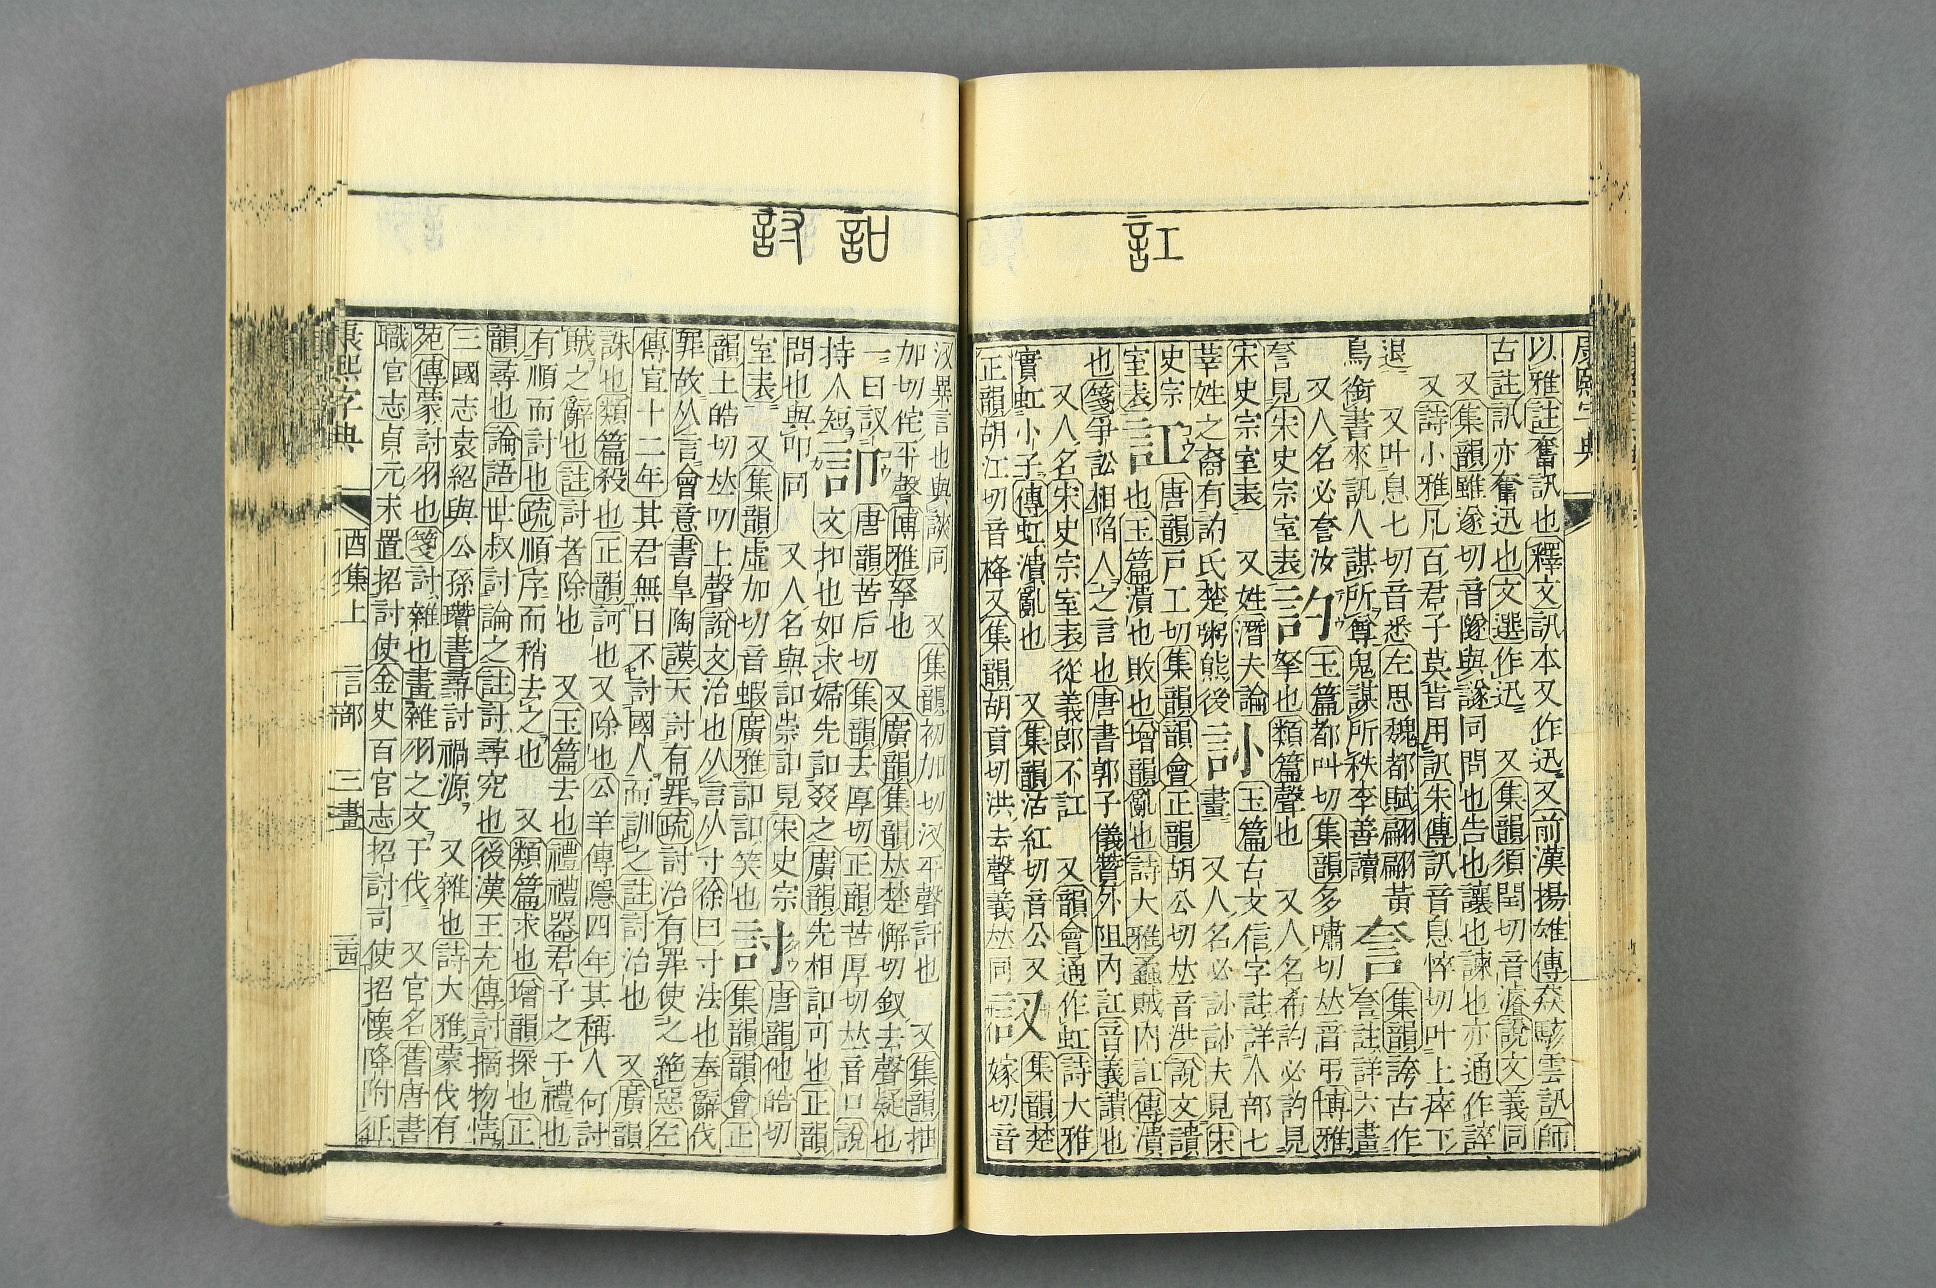 訌
康熙字典
以雅註奮訊也釋文訊本又作迅又前漢揚雄傳猋駭雲訊師
古註訊亦奮迅也文選作迅 又集韻須閏切音濬說文義同
又集韻雖遂切音邃與誶同問也告也讓也諫也亦通作誶
又詩小雅凡百君子莫肯用訊朱傳訊音息悴切叶上瘁下
退 又叶息七切音悉左思魏都賦翩翩黃 集韻誇古作
鳥銜書來訊人謀所尊鬼謀所秩李善讀 註詳六畫
又人名必汝 訋 玉篇都叫切集韻多嘯切𠀤音弔博雅
見宋史宗室表 拏也類篇聲也 又人名希訋必訋見
宋史宗室表 又姓潛夫論 䚱 玉篇古文信字註詳人部七
芈姓之裔有訋氏楚粥熊後三 畫 又人名必䚱䚱夫見宋
史宗 訌 唐韻戸工切集韻韻會正韻胡公切𠀤音洪說文讀
室表 也玉篇潰也敗也增韻亂也詩大雅蟊賊內訌傳潰
也箋爭訟相陷人之言也唐書郭子儀贊外阻內訌音義讀也
又人名宋史宗室表從義郎不訌 又韻會通作虹詩大雅
實虹小子傳虹潰亂也 又集韻沽紅切音公又 訍 集韻楚
正韻胡江切音栙又集韻胡貢切洪去聲義𠀤同 嫁切音
訆 討
汊異言也與䜝同 又集韻初加切汊平聲訐也 又集韻抽
加切侘平聲博雅拏也 又廣韻集韻𠀤楚懈切釵去聲疑也
一曰訍 訆 唐韻苦后切集韻去厚切正韻苦厚切𠀤音口說
持人短 文扣也如求婦先訆叕之廣韻先相訆可也正韻
問也與叩同 又人名與訆崇訆見宋史宗
室表 又集韻虛加切音蝦廣雅訆訆笑也 討 唐韻他皓切
韻土皓切𠀤叨上聲說文治也从言从寸徐曰寸法也奉辭伐 集韻韻會正
罪故从言會意書皐陶謨天討有罪疏討治有罪使之絕惡左
傳宣十二年其君無日不討國人而訓之註討治也 又廣韻
誅也類篇殺也正韻訶也又除也公羊傳隱四年其稱人何討
賊之辭也註討者除也 又玉篇去也禮禮器君子之于禮也
有順而討也疏順序而稍去之也 又類篇求也增韻探也正
韻尋也論語世叔討論之註討尋究也後漢王充傳討摘物情
三國志袁紹與公孫瓚書尋討禍源 又雜也詩大雅蒙伐有
苑傳蒙討羽也箋討雜也畫雜羽之文于伐 又官名舊唐書
職官志貞元末置招討使金史百官志招討司使招懷降附征
康熙字典 酉集上 言部 三畫